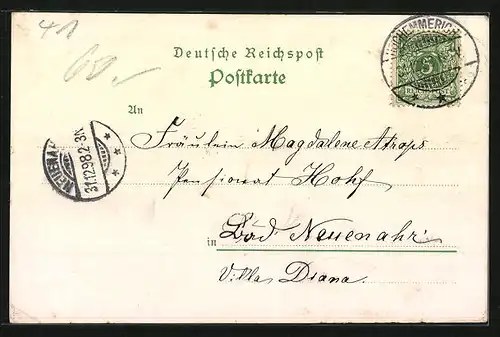 41
60.-
Deutsche Reichspost
Postkarte
An
Fräulein Magdalene Atrops
Pensionat Hohf
in Bad Neuenahr
Villa Diana.
EMMERICH
5
NEUENA
31.12.98.2-3N.